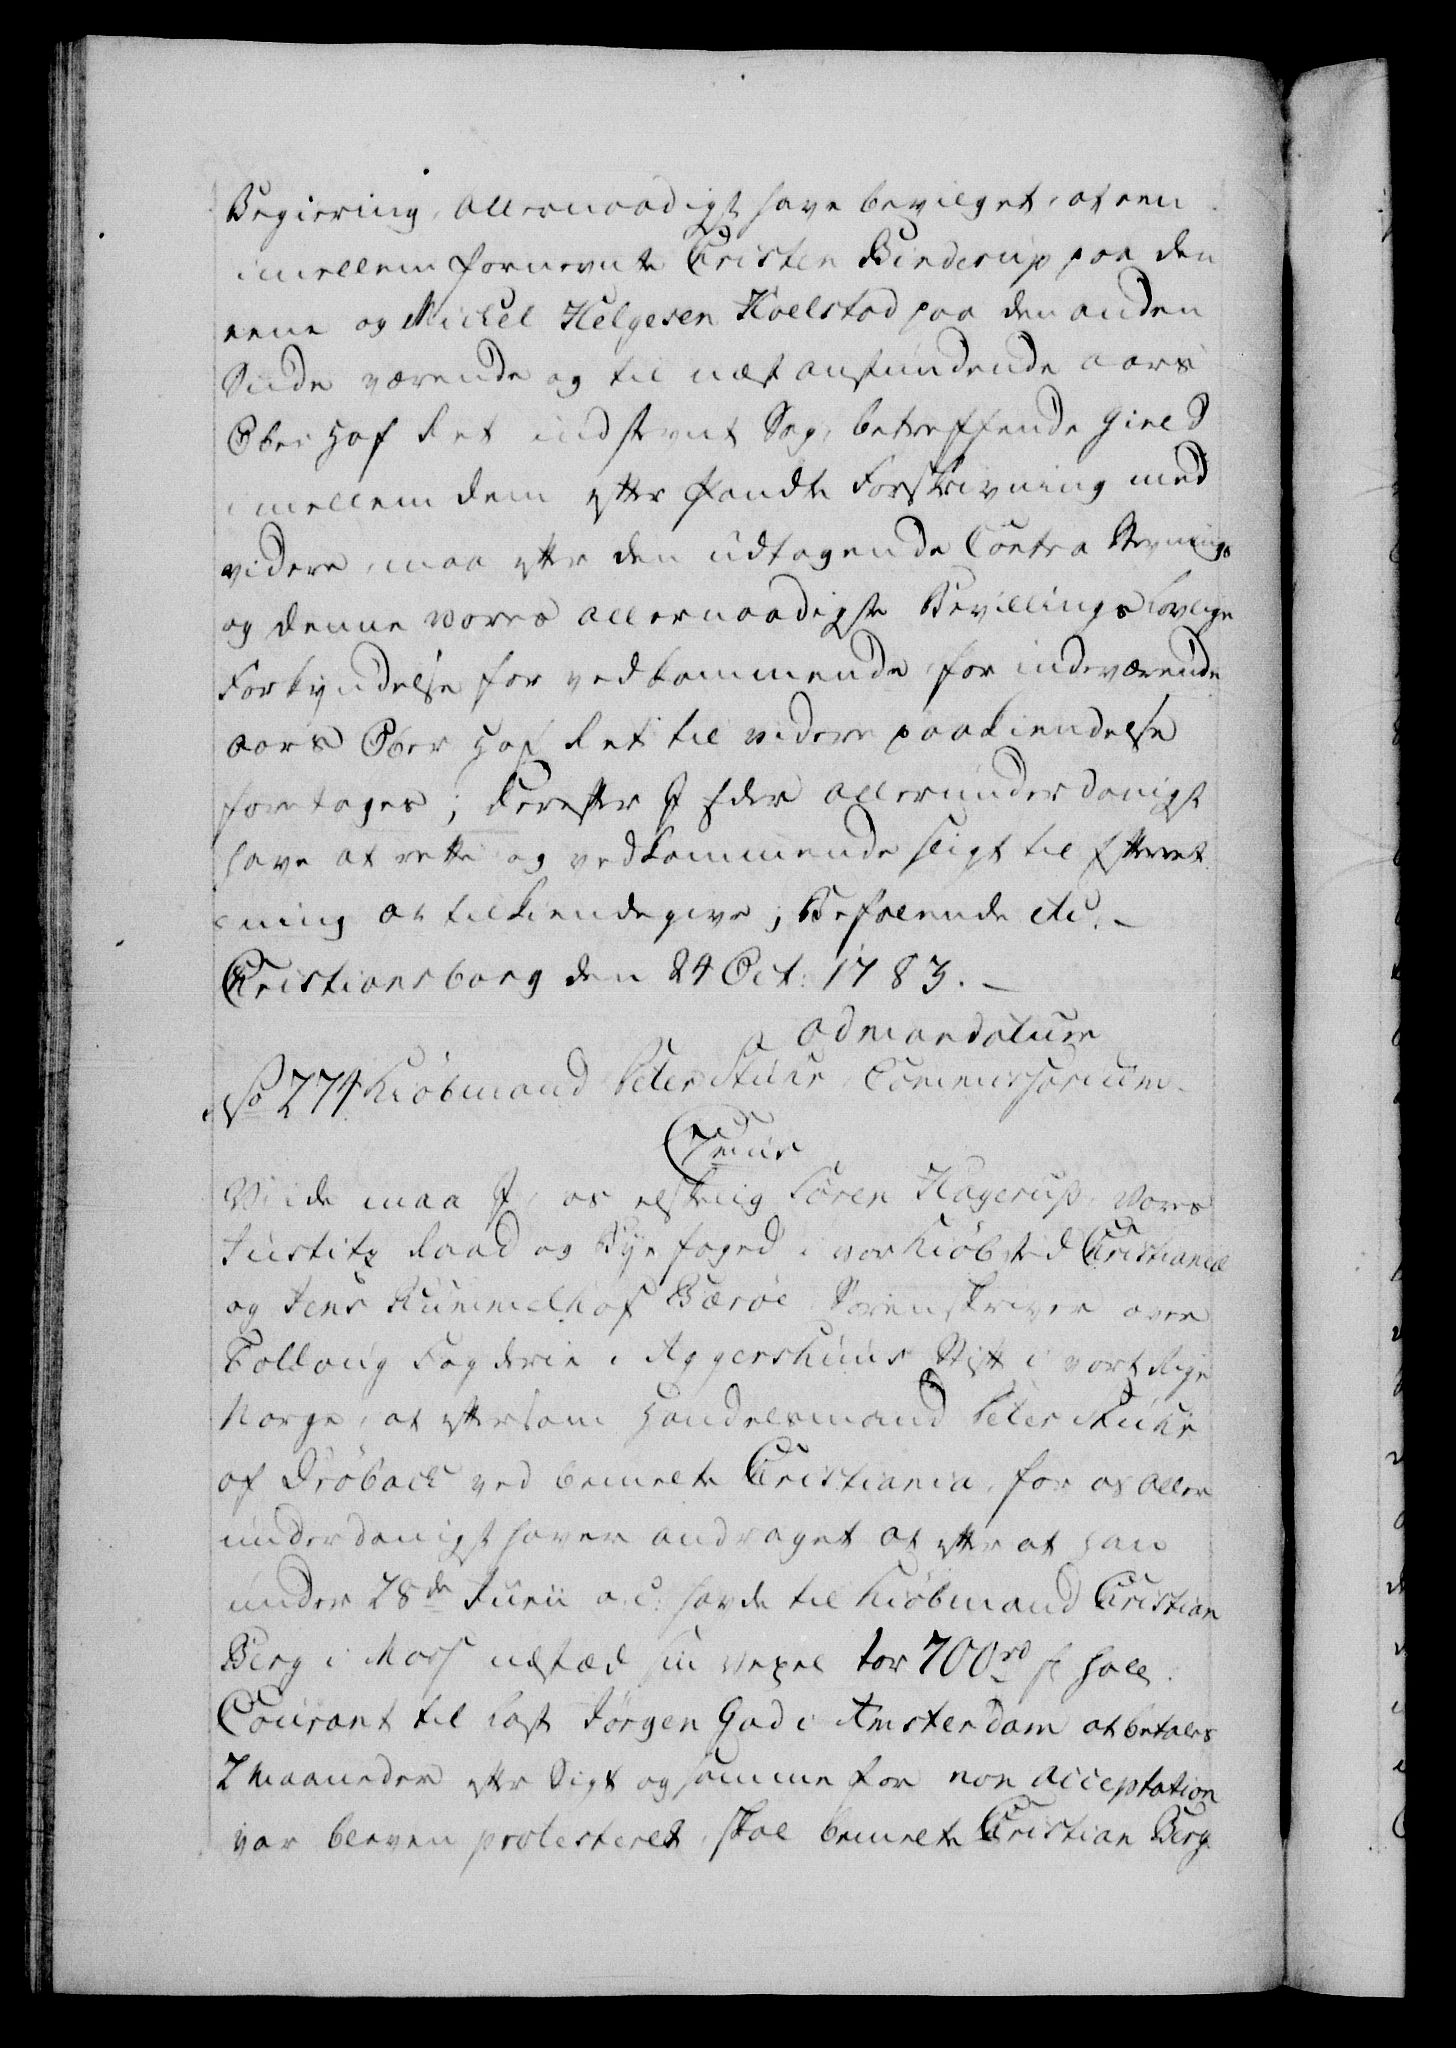 Begiering, allernaadigst have bevilget, at een
imellem fornevnte Cristen Binderup paa den
eene og Mickel Helgesen Hoelstad paa den anden
Siide værende og til næst anstundende aars
Ober Hof Ret indstevnt Sag, betreffende Gield
imellem dem efter Pandte Forskrivning med
videre, maa efter den udtagende Contra Stevnings
og denne vores allernaadigste Bevillings lovlige
Forkyndelse for vedkommende, for indeværende
aars Ober Hof Ret til videre paakiendelse
foretages; Derefter I Eder allerunderdanigst
have at rette og vedkommende sligt til Efterret
ning at tilkiendegive; Befalende etc. –
Cristiansborg den 24 Oct: 1783. –
ad mandatum
No 274 Kiøbmand Peter Stuhr Commissorium.
C 7mus
Viide maa I, os elskelig Søren Hagerup, Vores
Justitz Raad og Bye foged i vor Kiøbsted Cristiania
og Jens Rummelhof Bærøe Sorenskriver over
Folloug Fogderie i Aggershuus Stift i vort Rige
Norge, at eftersom Handelsmand Peter Stuhr
af Drøback ved bemelte Cristiania, for os aller
underdanigst haver andraget at efter at han
under 28de Junii a: c: havde til Kiøbmand Cristian
Berg i Moss udstæd sin vexel for 700 rd holl.
Courant til last Jørgen Gad i Amsterdam at betales
2 Maaneder efter Sigt og samme for non acceptation
var bleven protesteret, skal bemelte Cristian Berg